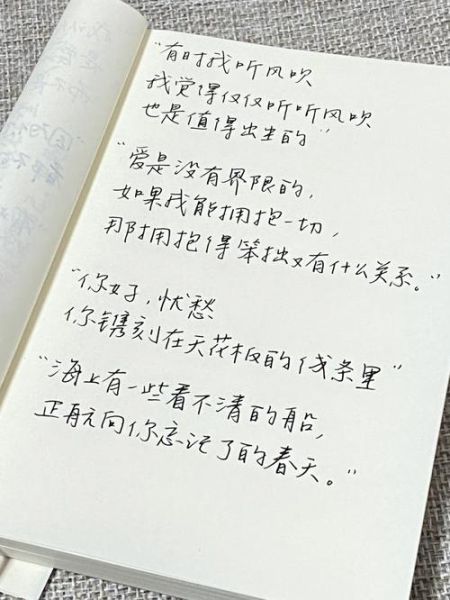 "有时我听风吹
我觉得仅仅听听风吹
也是值得出生的"
"爱是没有界限的，
如果我能拥抱一切，
那拥抱得笨拙又有什么关系。"
"你好，忧愁
你镌刻在天花板的线条里"
"海上有一些看不清的船，
正航向你忘记了的春天。"